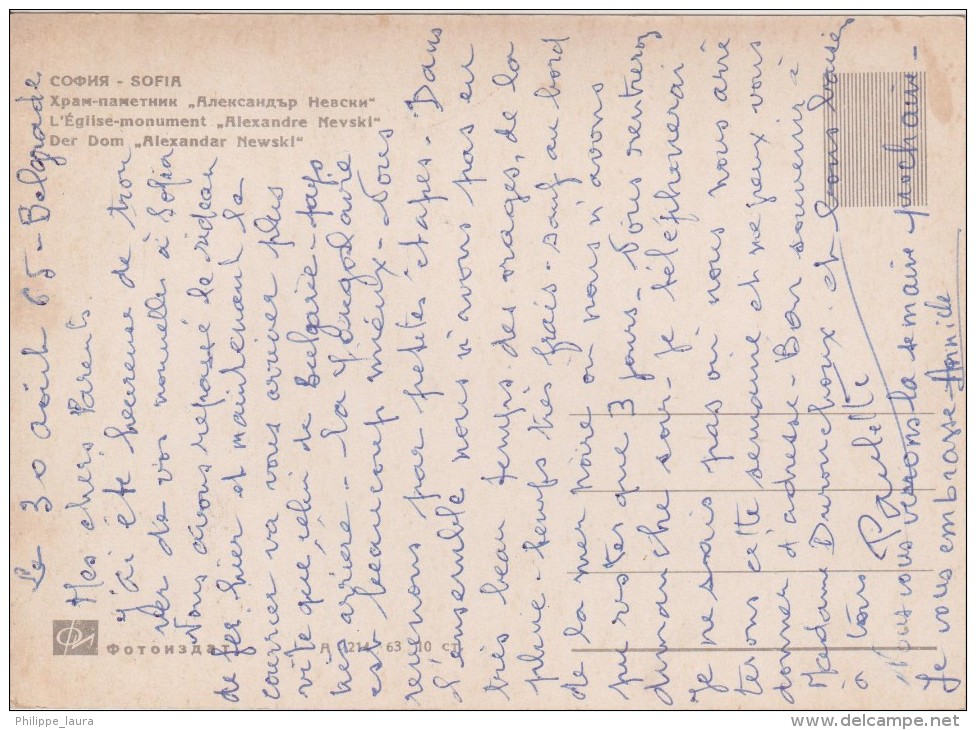 СОФИЯ - SOFIA
Храм-паметник „Александър Невски“
L'Église-monument „Alexandre Nevski“
Der Dom „Alexandar Newski“
Фотоиздат
63 10 ст.
Le 30 août 65 - Belgrade
Mes chers Parents
J'ai été heureuse de trou
ver de vos nouvelles à Sofia
Nous avons repassé le rideau
de fer hier et maintenant le
courrier va vous arriver plus
vite que celui de Bulgarie - pays
arriéré. La Yougoslavie
est beaucoup mieux - Nous
revenons par petites étapes. Dans
l'ensemble nous n'avons pas eu
très beau temps. des orages, de la
pluie - temps très frais - sauf au bord
de la mer noire où nous n'avons
pu rester que 3 jours - Nous rentrerons
dimanche soir - Je téléphonerai
Je ne sais pas où nous nous arrê
terons cette semaine et ne peux vous
donner d'adresse - Bon souvenir à
Madame Durouchoux et bons baisers
à tous Paulette
Nous vous verrons la semaine prochaine -
Je vous embrasse Annick
Philippe_laura
www.delcampe.net